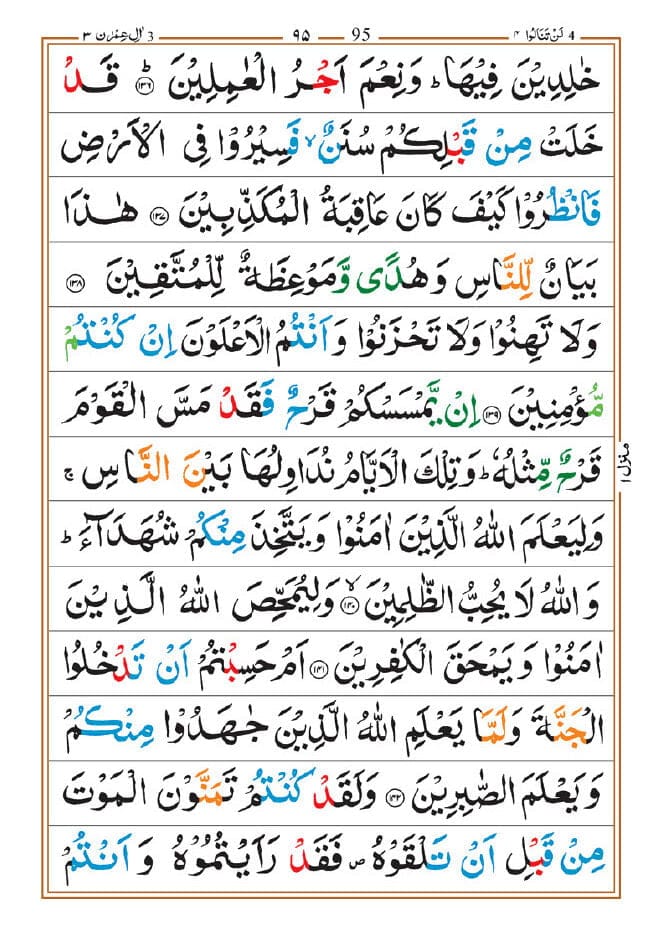 4 لَنْ تَنَالُوا ٤ 95 ٩٥ 3 اٰلِ عِمْرٰن ٣
خٰلِدِيْنَ فِيْهَا ؕ وَنِعْمَ اَجْرُ الْعٰمِلِيْنَ ؕ﴿۱۳۶﴾ قَدْ
خَلَتْ مِنْ قَبْلِكُمْ سُنَنٌ ۙ فَسِيْرُوْا فِى الْاَرْضِ
فَانْظُرُوْا كَيْفَ كَانَ عَاقِبَةُ الْمُكَذِّبِيْنَ ﴿۱۳۷﴾ هٰذَا
بَيَانٌ لِّلنَّاسِ وَهُدًى وَّمَوْعِظَةٌ لِّلْمُتَّقِيْنَ ﴿۱۳۸﴾
وَلَا تَهِنُوْا وَلَا تَحْزَنُوْا وَاَنْتُمُ الْاَعْلَوْنَ اِنْ كُنْتُمْ
مُّؤْمِنِيْنَ ﴿۱۳۹﴾ اِنْ يَّمْسَسْكُمْ قَرْحٌ فَقَدْ مَسَّ الْقَوْمَ
قَرْحٌ مِّثْلُهٗ ؕ وَتِلْكَ الْاَيَّامُ نُدَاوِلُهَا بَيْنَ النَّاسِ ۚ
وَلِيَعْلَمَ اللّٰهُ الَّذِيْنَ اٰمَنُوْا وَيَتَّخِذَ مِنْكُمْ شُهَدَآءَ ؕ
وَاللّٰهُ لَا يُحِبُّ الظّٰلِمِيْنَ ۙ﴿۱۴۰﴾ وَلِيُمَحِّصَ اللّٰهُ الَّذِيْنَ
اٰمَنُوْا وَيَمْحَقَ الْكٰفِرِيْنَ ﴿۱۴۱﴾ اَمْ حَسِبْتُمْ اَنْ تَدْخُلُوا
الْجَنَّةَ وَلَمَّا يَعْلَمِ اللّٰهُ الَّذِيْنَ جٰهَدُوْا مِنْكُمْ
وَيَعْلَمَ الصّٰبِرِيْنَ ﴿۱۴۲﴾ وَلَقَدْ كُنْتُمْ تَمَنَّوْنَ الْمَوْتَ
مِنْ قَبْلِ اَنْ تَلْقَوْهُ ۪ فَقَدْ رَاَيْتُمُوْهُ وَاَنْتُمْ
منزل ۱